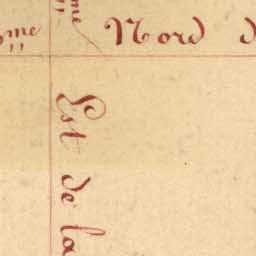 me
me
Nord d
Est de la